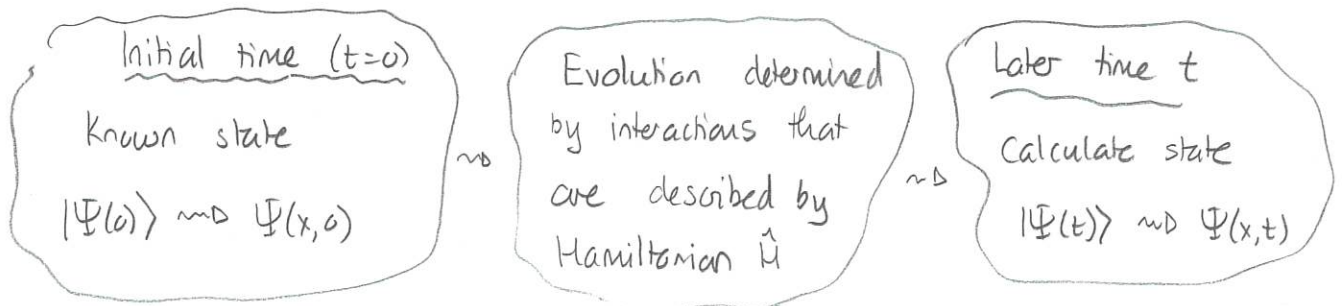 Initial time (t=0)
Known state
|Ψ(0)⟩ ⇝ Ψ(x,0)
⇝
Evolution determined
by interactions that
are described by
Hamiltonian Ĥ
⇝
Later time t
Calculate state
|Ψ(t)⟩ ⇝ Ψ(x,t)